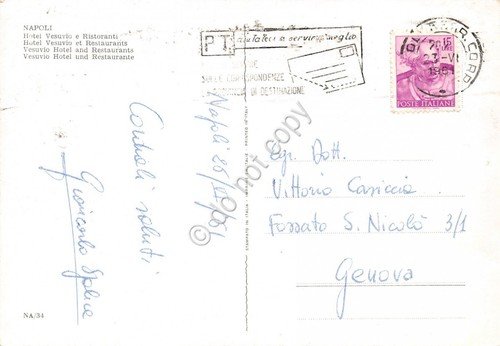 NAPOLI
Hotel Vesuvio e Ristoranti
Hotel Vesuvio et Restaurants
Vesuvio Hotel and Restaurants
Vesuvio Hotel und Restaurante
PT
aiutateci a servirvi meglio
SULLE CORRISPONDENZE
DI DESTINAZIONE
23-VI
1961
15
POSTE ITALIANE
Napoli
Cordiali saluti
Giancarlo
do not copy
Dott.
Vittorio Casiccia
Fossato S. Nicolò 3/1
Genova
NA/34